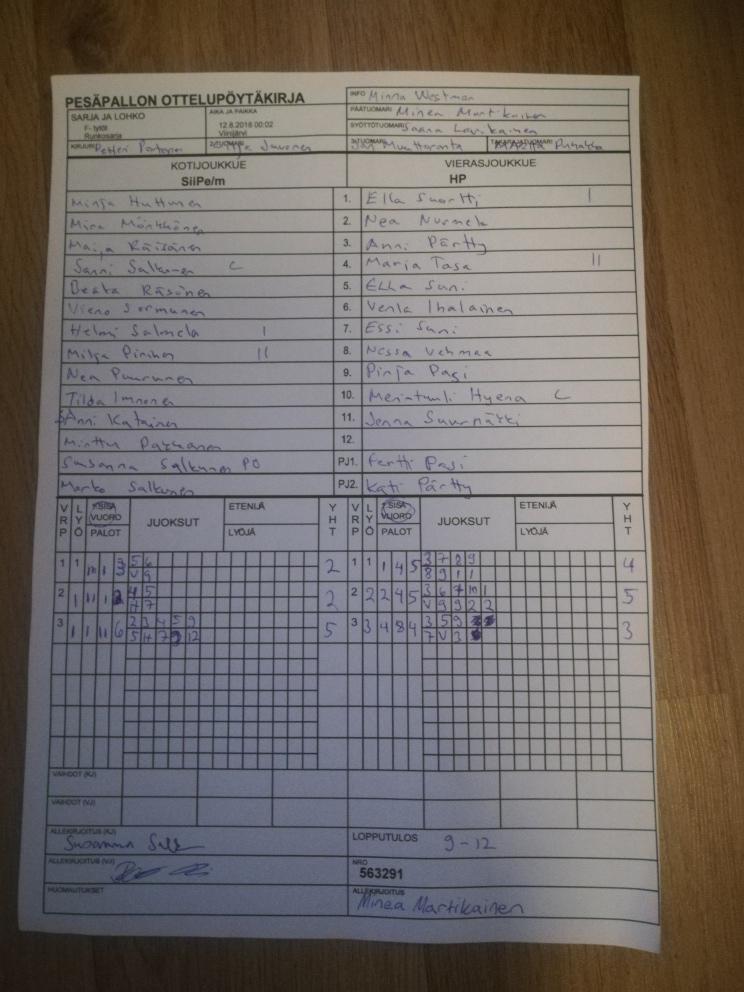 PESÄPALLON OTTELUPÖYTÄKIRJA
INFO Minna Westman
SARJA JA LOHKO
F- tytöt
Runkosarja
AIKA JA PAIKKA
12.6.2016 00:02
Viinijärvi
PÄÄTUOMARI Minea Martikainen
SYÖTTÖTUOMARI
KIRJURI
2-TUOMARI
3-TUOMARI
TAKARAJATUOMARI
KOTIJOUKKUE
SiiPe/m
VIERASJOUKKUE
HP
Minja Huttunen 1. Ella Suortti I
Mira Mönkkönen 2. Nea
Maija Räisänen 3. Anni Pärtty
Sanni Salkunen C 4. Marja Tasa II
Beata Räsänen 5. Ella Suni
Vieno Sormunen 6. Venla Ihalainen
Helmi Salmela I 7. Essi Suni
Milja Pirinen II 8. Nessa Vehmaa
Nea Puurunen 9. Pinja Pasi
Tilda Immonen 10. Merituuli Hyena C
Anni Katainen 11. Jenna
Minttu 12.
Susanna Salkunen PO PJ1. Pertti Pasi
Marko Salkunen PJ2. Kati Pärtty
VRP LYÖ SISÄ VUORO PALOT JUOKSUT ETENIJÄ LYÖJÄ YHT VRP LYÖ SISÄ VUORO PALOT JUOKSUT ETENIJÄ LYÖJÄ YHT
1 1 5 6 2 1 1 1 4 5 3 7 8 9 4
V 9 8 9 1 1
2 1 4 5 2 2 2 2 4 5 3 6 7 10 1 5
H 7 V 9 9 2 2
3 1 1 11 6 2 3 4 5 9 5 3 3 4 8 4 3 5 9 3
5 H 7 9 12 7 V 3
VAIHDOT (KJ)
VAIHDOT (VJ)
ALLEKIRJOITUS (KJ) Susanna
LOPPUTULOS 9-12
ALLEKIRJOITUS (VJ)
NRO
563291
HUOMAUTUKSET
ALLEKIRJOITUS
Minea Martikainen